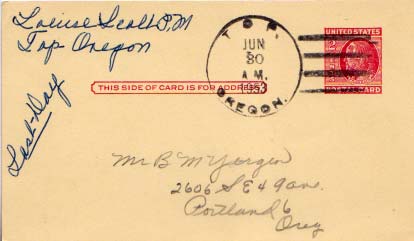 Louise Scott P.M
Top-Oregon
Last-Day
TOP,
JUN
30
A.M.
1953
OREGON.
UNITED STATES
THIS SIDE OF CARD IS FOR ADDRESS
Mr B M Yergen
2606 S E 49 ave.
Portland 6
Oreg